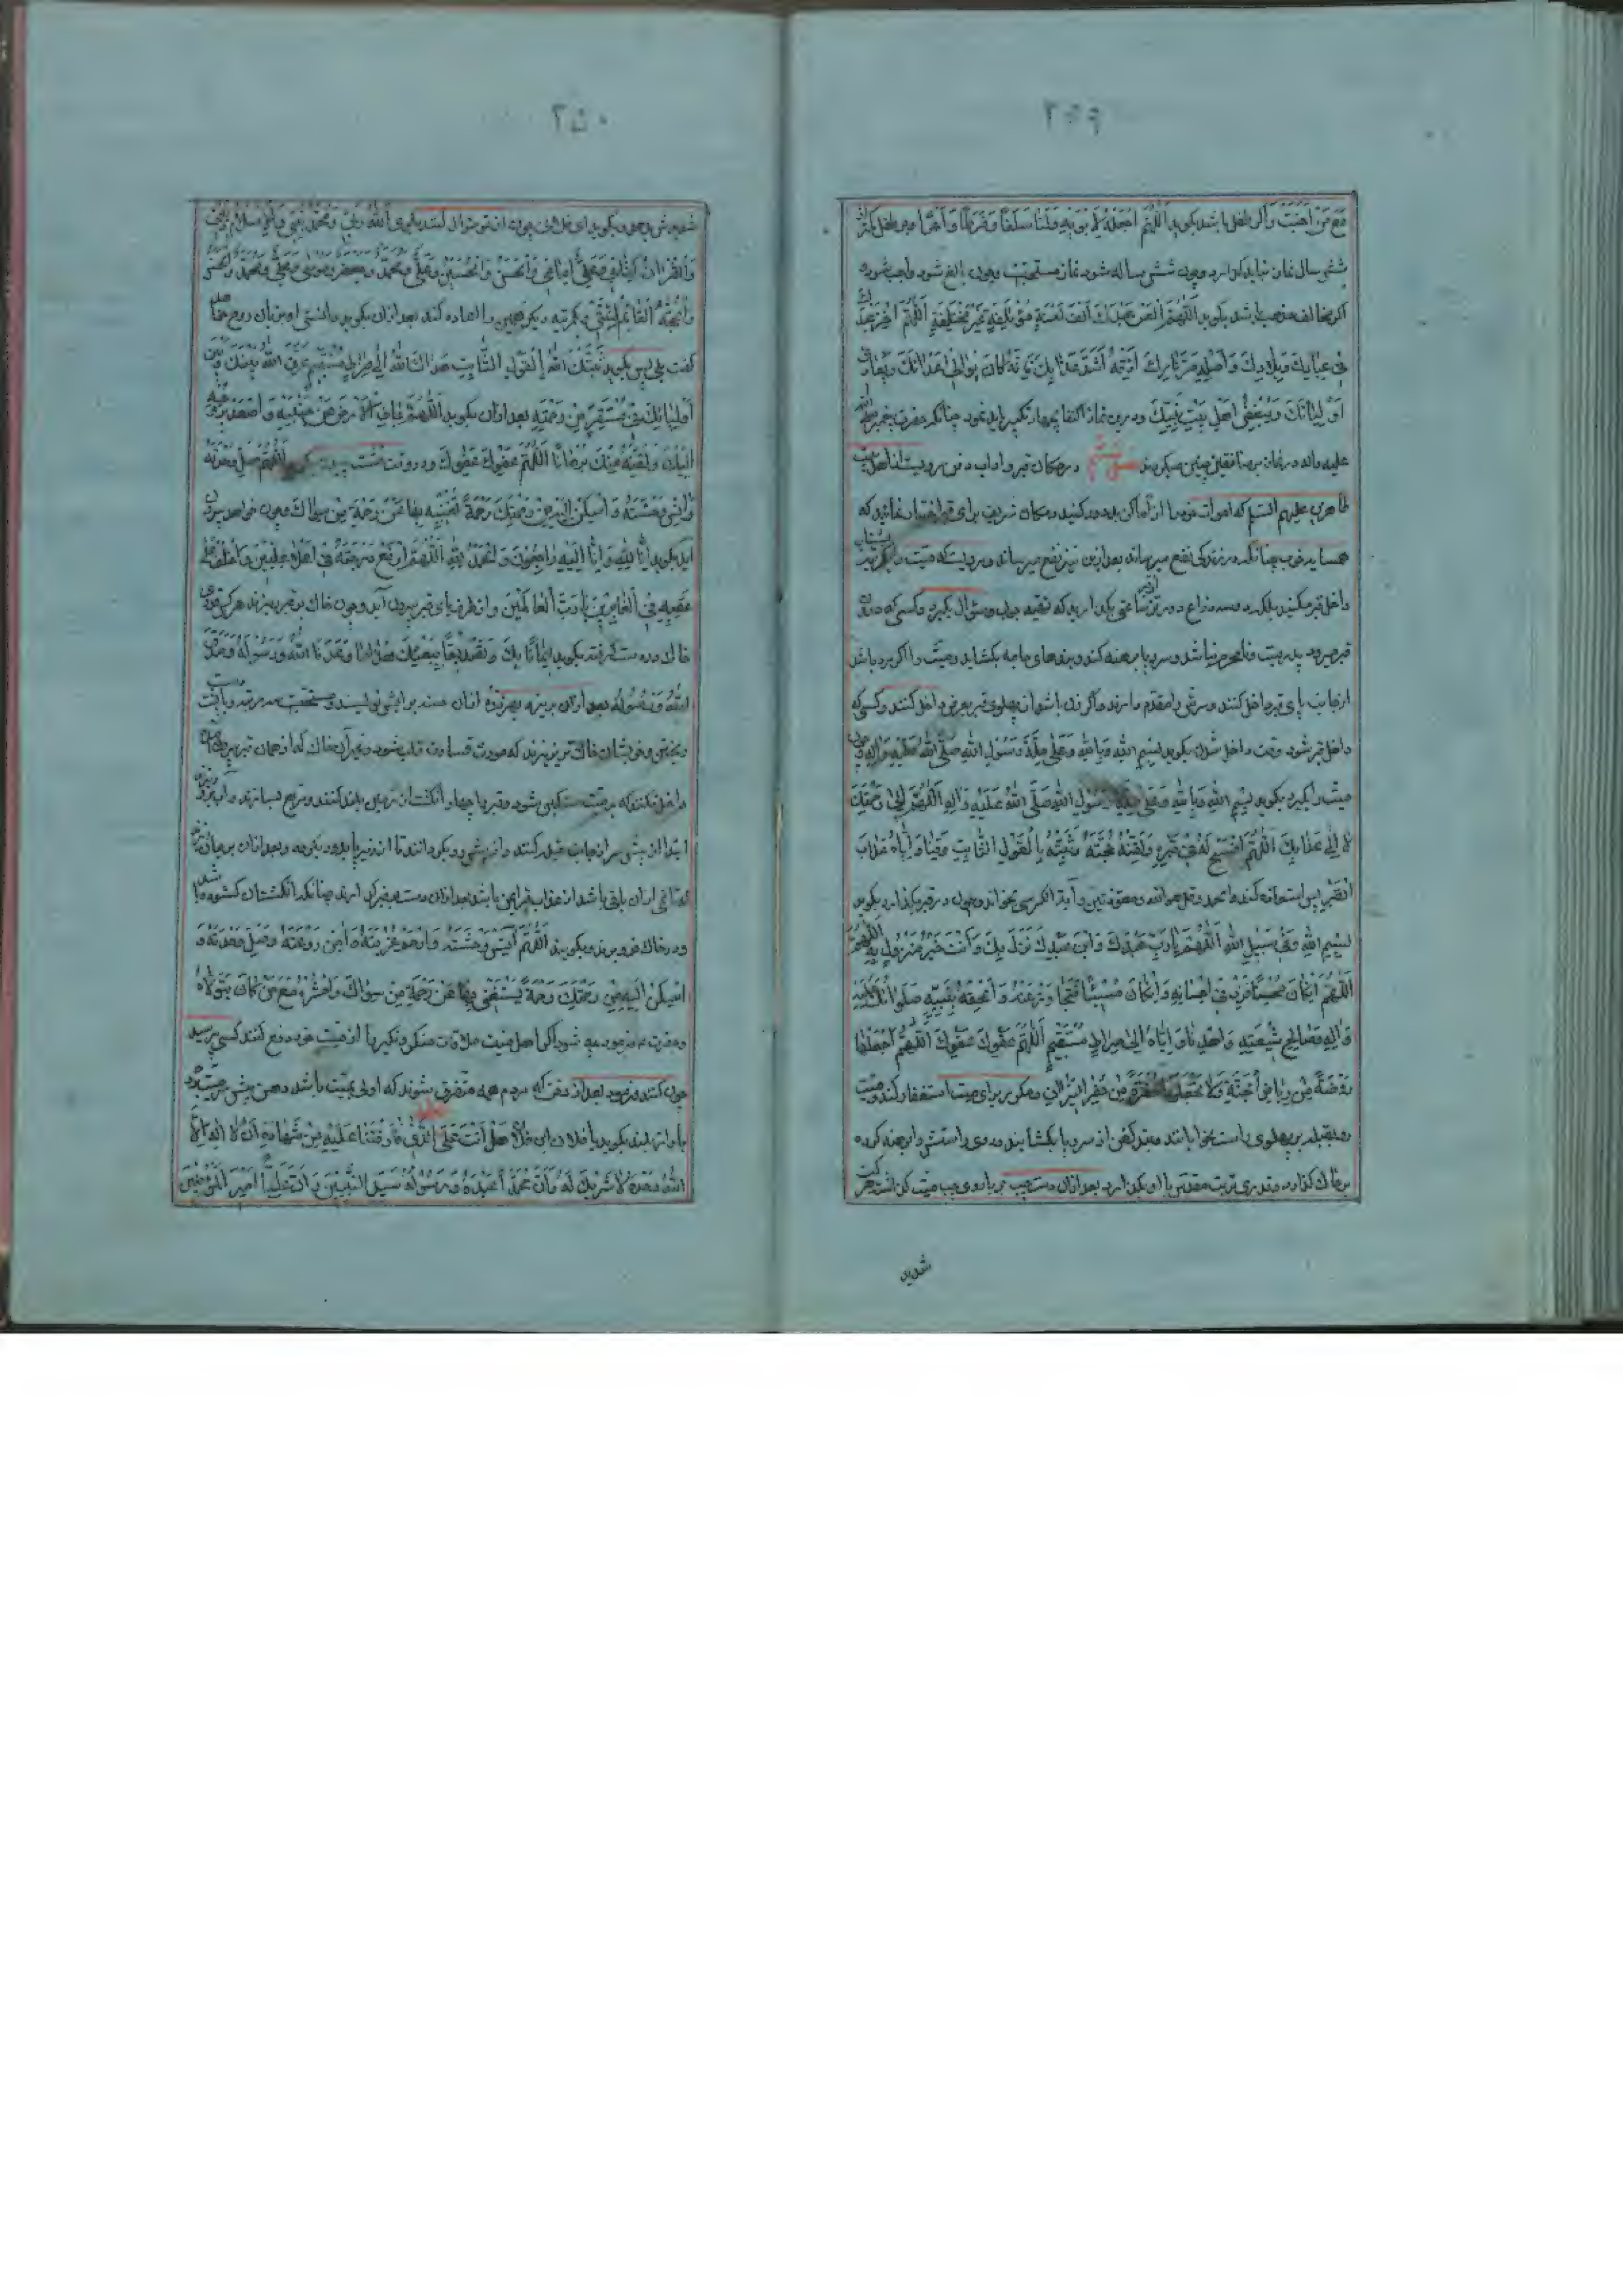 ۲۴۹
مَعَ مَنْ اَحْبَبْتَ وَاگر طفل باشد بگوید اَللّٰهُمَّ اجْعَلْهُ لِاَبَوَيْهِ وَلَنَا سَلَفًا وَفَرَطًا وَاَجْرًا
شش سال نماز نباید کرد و چون شش ساله شود نماز مستحبّ و چون بالغ شود واجب شود و
اگر مخالف مذهب باشد بگوید اَللّٰهُمَّ الْعَنْ عَبْدَكَ اَلْفَ لَعْنَةٍ مُؤْتَلِفَةٍ غَيْرِ مُخْتَلِفَةٍ اَللّٰهُمَّ اَخْزِ عَبْدَكَ
فِي عِبَادِكَ وَبِلَادِكَ وَاَصْلِهِ حَرَّ نَارِكَ اَذِقْهُ اَشَدَّ عَذَابِكَ فَاِنَّهُ كَانَ يُوَالِي اَعْدَائَكَ وَيُعَادِي
اَوْلِيَائَكَ وَيُبْغِضُ اَهْلَ بَيْتِ نَبِيِّكَ و درین نماز اکتفا بچهار تکبیر باید نمود چنانکه حضرت پیغمبر صلی الله
علیه واله در نماز بر منافقان چنین میکردند فصل ششم در مکان قبر و اداب دفن مرویست از اهل بیت
طاهرین علیهم السلم که اموات خود را از اماکن بد دور کنید و مکان شریف برای قبر اختیار نمائید که
همسایه خوب چنانکه در زندگی نفع میرساند بعد از ان نیز نفع میرساند و مرویست که میّت را بشتاب
داخل قبر مکنید بلکه دو سه ذراع دورتر از قبر ساعتی بگذارید که تهیّه جواب و سؤال بگیرد و کسی که در
قبر میرود پدر میت و نامحرم نباشد و سر و پا برهنه کند و بندهای جامه بگشاید و میّت را اگر مرد باشد
از جانب پای قبر داخل کنند و سرش را مقدم دارند و اگر زن باشد از پهلوی قبر بعرض داخل کنند و کسی که
داخل قبر شود وقت داخل شدن بگوید بِسْمِ اللهِ وَبِاللهِ وَعَلَى مِلَّةِ رَسُولِ اللهِ صَلَّى اللهُ عَلَيْهِ وَاٰلِهِ و چون
میّت را بگیرد بگوید بِسْمِ اللهِ وَبِاللهِ وَعَلَى مِلَّةِ رَسُولِ اللهِ صَلَّى اللهُ عَلَيْهِ وَاٰلِهِ اَللّٰهُمَّ اِلٰى رَحْمَتِكَ
لَا اِلٰى عَذَابِكَ اَللّٰهُمَّ افْسَحْ لَهُ فِي قَبْرِهِ وَلَقِّنْهُ حُجَّتَهُ وَثَبِّتْهُ بِالْقَوْلِ الثَّابِتِ وَقِنَا وَاِيَّاهُ عَذَابَ
الْقَبْرِ پس استعاذه کند و الحمد و قل هو الله و معوّذتین و آیة الکرسی بخواند و چون در قبر بگذارد بگوید
بِسْمِ اللهِ وَفِي سَبِيلِ اللهِ اَللّٰهُمَّ يَا رَبِّ عَبْدُكَ وَابْنُ عَبْدِكَ نَزَلَ بِكَ وَاَنْتَ خَيْرُ مَنْزُولٍ بِهِ
اَللّٰهُمَّ اِنْ كَانَ مُحْسِنًا فَزِدْ فِي اِحْسَانِهِ وَاِنْ كَانَ مُسِيئًا فَتَجَاوَزْ عَنْهُ وَاَلْحِقْهُ بِنَبِيِّهِ صَلَوَاتُكَ عَلَيْهِ
وَاٰلِهِ وَصَالِحِ شِيعَتِهِ وَاهْدِنَا وَاِيَّاهُ اِلٰى صِرَاطٍ مُسْتَقِيمٍ اَللّٰهُمَّ عَفْوَكَ عَفْوَكَ اَللّٰهُمَّ اجْعَلْهَا
رَوْضَةً مِنْ رِيَاضِ الْجَنَّةِ وَلَا تَجْعَلْهَا حُفْرَةً مِنْ حُفَرِ النِّيرَانِ و مکرّر برای میت استغفار کند و میّت
رو بقبله بر پهلوی راست بخوابانند و بند کفن از سر و پا بگشایند و روی راستش را برهنه کرده
بر خاک گذارد و قدری تربت مقدّس با او بگذارد بعد از ان دست چپ
شدید
۲۵۰
اَللّٰهُ رَبِّي وَمُحَمَّدٌ نَبِيِّي وَالْاِسْلَامُ دِينِي
وَالْقُرْاٰنُ كِتَابِي وَعَلِيٌّ اِمَامِي وَالْحَسَنُ وَالْحُسَيْنُ وَعَلِيٌّ وَمُحَمَّدٌ وَجَعْفَرٌ وَمُوسٰى وَعَلِيٌّ وَمُحَمَّدٌ وَعَلِيٌّ وَالْحَسَنُ
وَالْحُجَّةُ الْقَائِمُ اَئِمَّتِي یکمرتبه دیگر همین را اعاده کند بعد از ان بگوید دانستی
گفت بلی پس بگوید ثَبَّتَكَ اللهُ بِالْقَوْلِ الثَّابِتِ هَدَاكَ اللهُ اِلٰى صِرَاطٍ مُسْتَقِيمٍ عَرَّفَ اللهُ بَيْنَكَ وَبَيْنَ
اَوْلِيَائِكَ فِي مُسْتَقَرٍّ مِنْ رَحْمَتِهِ بعد از ان بگوید اَللّٰهُمَّ جَافِ الْاَرْضَ عَنْ جَنْبَيْهِ وَاصْعَدْ بِرُوحِهِ
اِلَيْكَ وَلَقِّنْهُ مِنْكَ بُرْهَانًا اَللّٰهُمَّ عَفْوَكَ عَفْوَكَ و در وقت خشت چیدن بگوید اَللّٰهُمَّ صِلْ وَحْدَتَهُ
وَاٰنِسْ وَحْشَتَهُ وَاَسْكِنْ اِلَيْهِ مِنْ رَحْمَتِكَ رَحْمَةً تُغْنِيهِ بِهَا عَنْ رَحْمَةِ مَنْ سِوَاكَ و چون خواهد بیرون
آید بگوید اِنَّا لِلّٰهِ وَاِنَّا اِلَيْهِ رَاجِعُونَ وَالْحَمْدُ لِلّٰهِ اَللّٰهُمَّ ارْفَعْ دَرَجَتَهُ فِي اَعْلٰى عِلِّيِّينَ وَاخْلُفْ عَلٰى
عَقِبِهِ فِي الْغَابِرِينَ يَا رَبَّ الْعَالَمِينَ و از طرف پای قبر بیرون آید و چون خاک بر قبر بریزند هر کس قدری
خاک در دست گرفته بگوید اِيمَانًا بِكَ وَتَصْدِيقًا بِبَعْثِكَ هٰذَا مَا وَعَدَنَا اللهُ وَرَسُولُهُ وَصَدَقَ
اللهُ وَرَسُولُهُ بعد از ان بریزد
و خویشان خاک نریزند که مورث قساوت قلب شود و غیر آن خاک که از همان قبر
داخل نکنند که بر میّت سنگین شود و قبر را چهار انگشت از زمین بلند کنند و مربع بسازند و آب بریزند
ابتدا از پیش سر از جانب قبله کنند
تری از ان باقی باشد از عذاب قبر ایمن باشد بعد از ان دست بر قبر گذارند چنانکه انگشتان گشوده باشد
و در خاک فرو برند و بگویند اَللّٰهُمَّ اٰنِسْ وَحْشَتَهُ وَارْحَمْ غُرْبَتَهُ وَاٰمِنْ رَوْعَتَهُ وَصِلْ وَحْدَتَهُ وَ
اَسْكِنْ اِلَيْهِ مِنْ رَحْمَتِكَ رَحْمَةً يَسْتَغْنِي بِهَا عَنْ رَحْمَةِ مَنْ سِوَاكَ وَاحْشُرْهُ مَعَ مَنْ كَانَ يَتَوَلَّاهُ
ملاقات منکر و نکیر را از میّت خود دفع کنند کسی پرسید
چون کنند فرمود بعد از دفن که مردم همه متفرق شوند که اولی بمیّت باشد دهن پیش سر میّت برد
باواز بلند بگوید یا فلان ابن فلان هَلْ اَنْتَ عَلَى الَّذِي فَارَقْتَنَا عَلَيْهِ مِنْ شَهَادَةِ اَنْ لَا اِلٰهَ اِلَّا
اللهُ وَحْدَهُ لَا شَرِيكَ لَهُ وَاَنَّ مُحَمَّدًا عَبْدُهُ وَرَسُولُهُ سَيِّدُ النَّبِيِّينَ وَاَنَّ عَلِيًّا اَمِيرُ الْمُؤْمِنِينَ